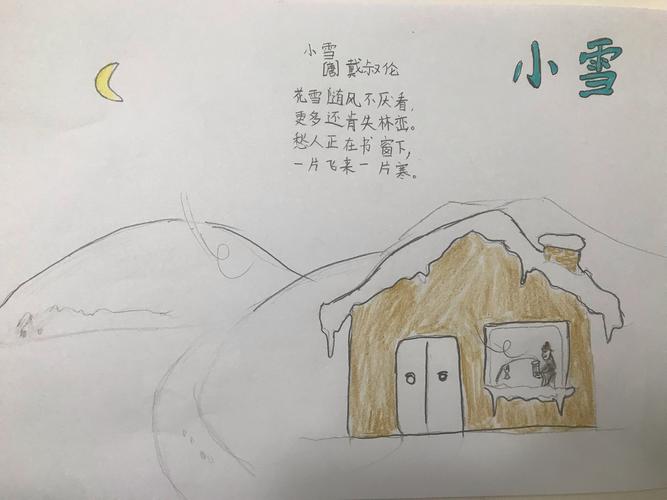 小雪
小雪
[唐] 戴叔伦
花雪随风不厌看,
更多还肯失林峦。
愁人正在书窗下,
一片飞来一片寒。